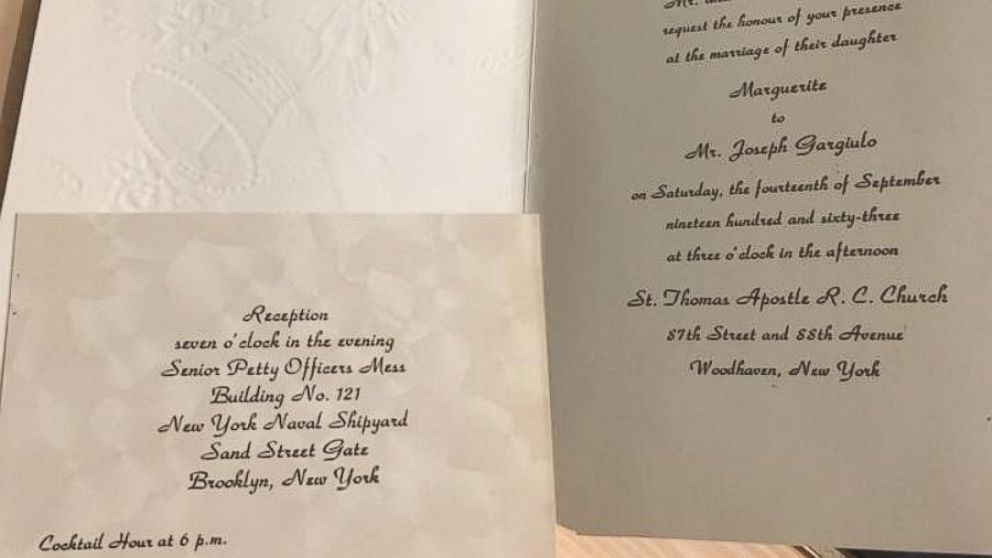 Reception
seven o'clock in the evening
Senior Petty Officers Mess
Building No. 121
New York Naval Shipyard
Sand Street Gate
Brooklyn, New York
Cocktail Hour at 6 p.m.
Mr. and
request the honour of your presence
at the marriage of their daughter
Marguerite
to
Mr. Joseph Gargiulo
on Saturday, the fourteenth of September
nineteen hundred and sixty-three
at three o'clock in the afternoon
St. Thomas Apostle R. C. Church
87th Street and 88th Avenue
Woodhaven, New York